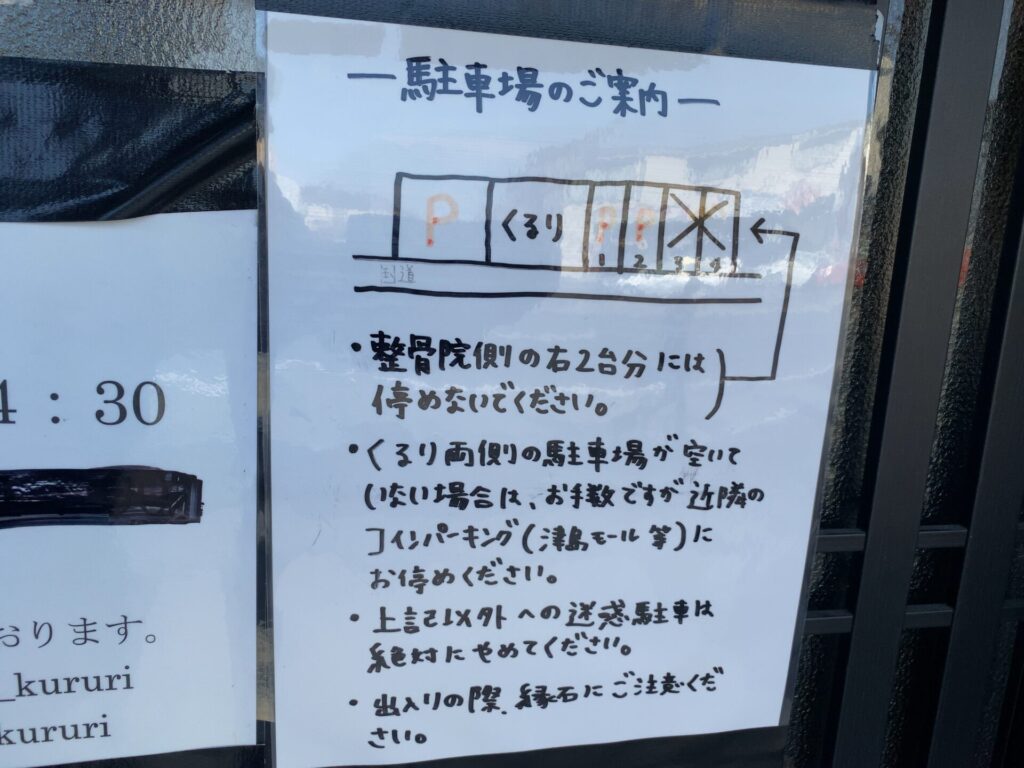 4：30
おります。
_kururi
kururi
―駐車場のご案内―
P くるり P P
1 2 3 4
国道
・整骨院側の右2台分には
停めないでください。
・くるり両側の駐車場が空いて
いない場合は、お手数ですが近隣の
コインパーキング(津島モール等)に
お停めください。
・上記以外への迷惑駐車は
絶対にやめてください。
・出入りの際、縁石にご注意くだ
さい。